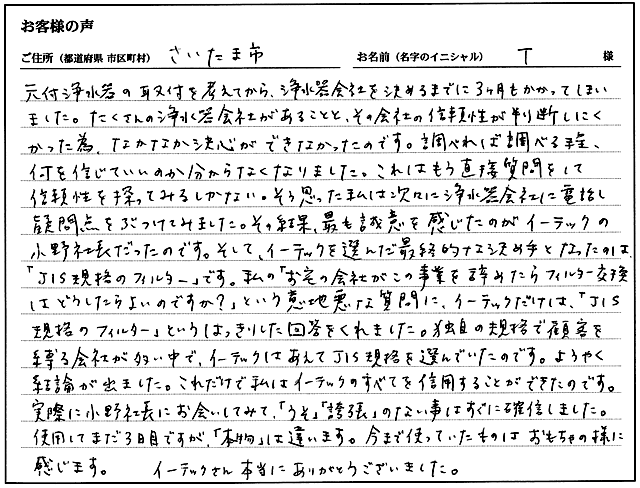 お客様の声
ご住所（都道府県 市区町村） さいたま市 お名前（名字のイニシャル） T 様
元付浄水器の取付を考えてから、浄水器会社を決めるまでに3ヶ月もかかってしまい
ました。たくさんの浄水器会社があることと、その会社の信頼性が判断しにく
かった為、なかなか決心ができなかったのです。調べれば調べる程、
何を信じていいのか分からなくなりました。これはもう直接質問をして
信頼性を探ってみるしかない。そう思った私は次々に浄水器会社に電話し
疑問点をぶつけてみました。その結果、最も誠意を感じたのがイーテックの
小野社長だったのです。そして、イーテックを選んだ最終的な決め手となったのは、
「JIS規格のフィルター」です。私の「お宅の会社がこの事業を辞めたらフィルター交換
はどうしたらよいのですか？」という意地悪な質問に、イーテックだけは、「JIS
規格のフィルター」というはっきりした回答をくれました。独自の規格で顧客を
縛る会社が多い中で、イーテックはあえてJIS規格を選んでいたのです。ようやく
結論が出ました。これだけで私はイーテックのすべてを信用することができたのです。
実際に小野社長にお会いしてみて、「うそ」「誇張」のない事はすぐに確信しました。
使用してまだ3日目ですが、「本物」は違います。今まで使っていたものはおもちゃの様に
感じます。 イーテックさん本当にありがとうございました。